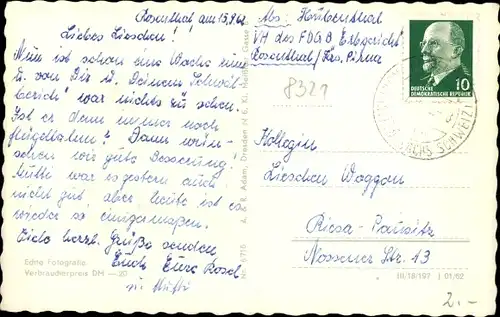 Rosenthal am 15.9.62
Liebes Lieschen!
Nun ist schon eine Woche um
u. von Dir u. Deinem
war nichts zu sehen.
Ist er denn immer noch
flügellahm? Dann wün-
schen wir gute Besserung!
Mutti war es gestern auch
nicht gut, aber heute ist es
wieder so einigermaßen.
Viele herzl. Grüße senden
Euch Eure Rosel
u. Mutti
Echte Fotografie
Verbraucherpreis DM -.20
Nr. 6716 A. & R. Adam, Dresden N 6, Kl. Meißner Gasse
Abs.
VH des FDGB Erbgericht
Rosenthal/Krs. Pirna
8321
10
DEUTSCHE
DEMOKRATISCHE REPUBLIK
(SÄCHS SCHWEIZ)
Kollegin
Lieschen Waggon
Riesa-Pausitz
Nossener Str. 13
III/18/197 01/62
2.-